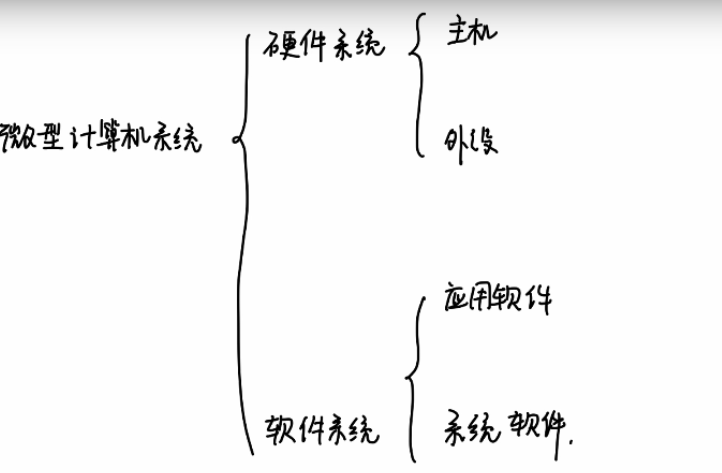 微型计算机系统
硬件系统
主机
外设
软件系统
应用软件
系统软件.